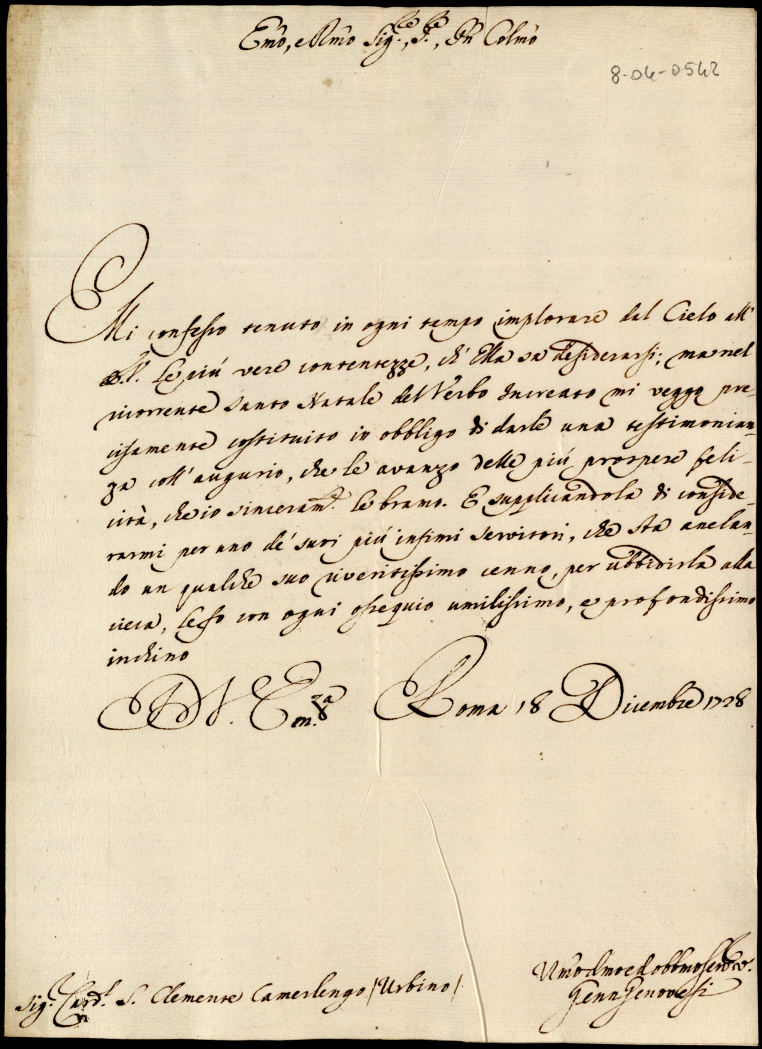 Emo, e Rmo Sig.re, P.re, Pñ Colmo
8-04-0542
Mi confesso tenuto in ogni tempo implorare dal Cielo all'
E.V. le più vere contentezze, ch'Ella sa desiderarsi; ma nel
ricorrente Santo Natale del Verbo Increato mi veggo pre-
cisamente costituito in obbligo di darle una testimonian-
za coll'augurio, che le avanzo delle più prospere feli-
cità, che io sinceram.te le bramo. E supplicandola di conside-
rarmi per uno de' suoi più infimi servitori, che sta anelan-
do un qualche suo riveritissimo cenno, per ubbidirla alla
cieca, le fo con ogni ossequio umilissimo, e profondissimo
inchino
D. V. Em.za Roma 18 Dicembre 1728
Sig. Card.l S. Clemente Camerlengo /Urbino/
Umo dmo ed obbmo ser.re
Genn Genovesi